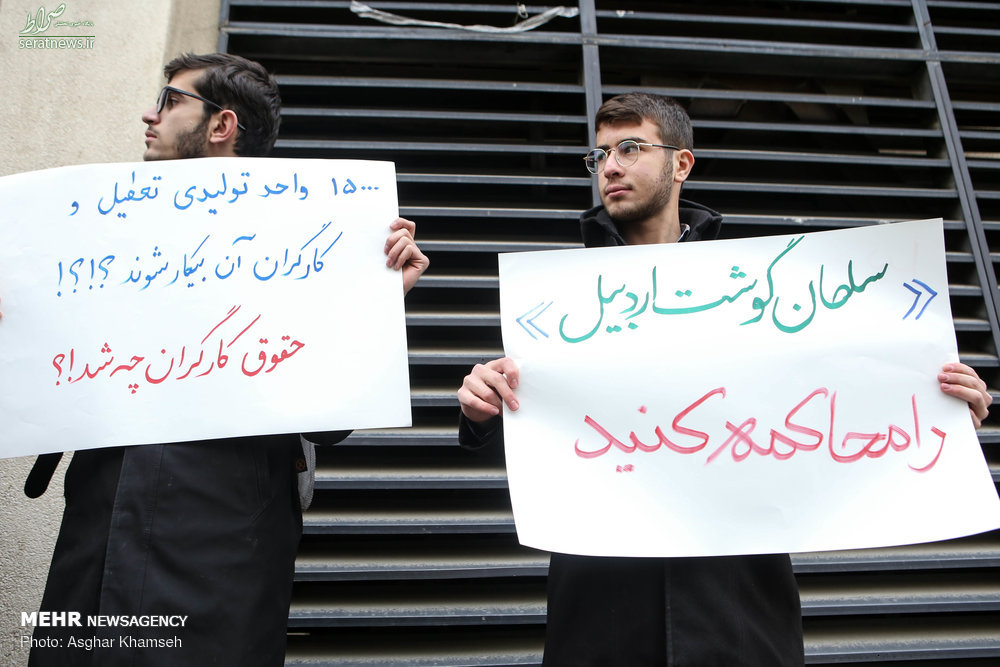 صراط
seratnews.ir
۱۵۰۰۰ واحد تولیدی تعطیل و
کارگران آن بیکار شوند ؟!؟!
حقوق کارگران چه شد!؟
«سلطان گوشت اردبیل»
را محاکمه کنید
MEHR NEWSAGENCY
Photo: Asghar Khamseh